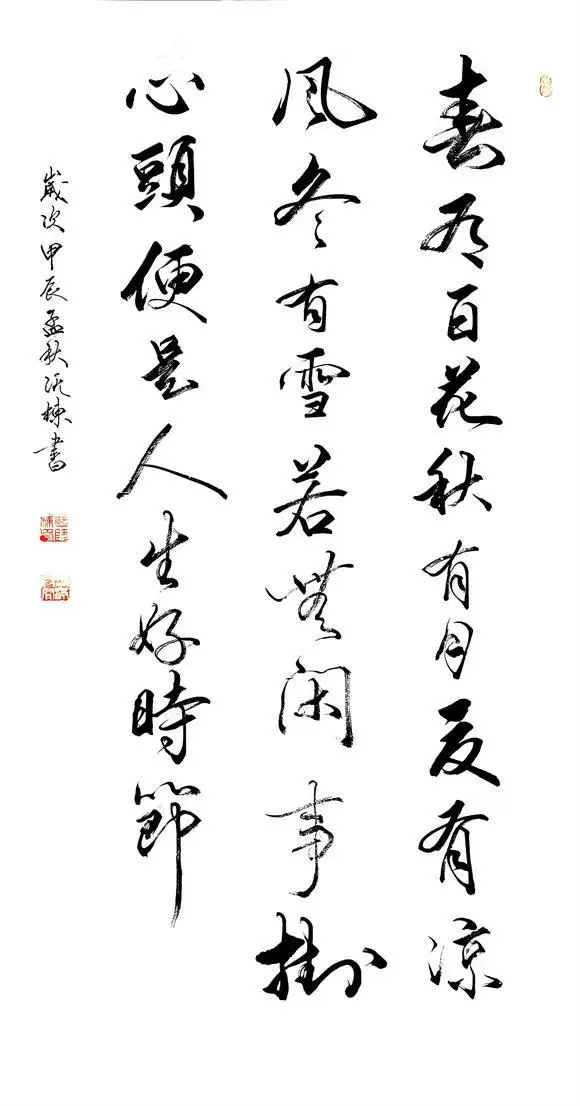 春有百花秋有月夏有涼
風冬有雪若無閑事掛
心頭便是人生好時節
歲次甲辰孟秋棟書